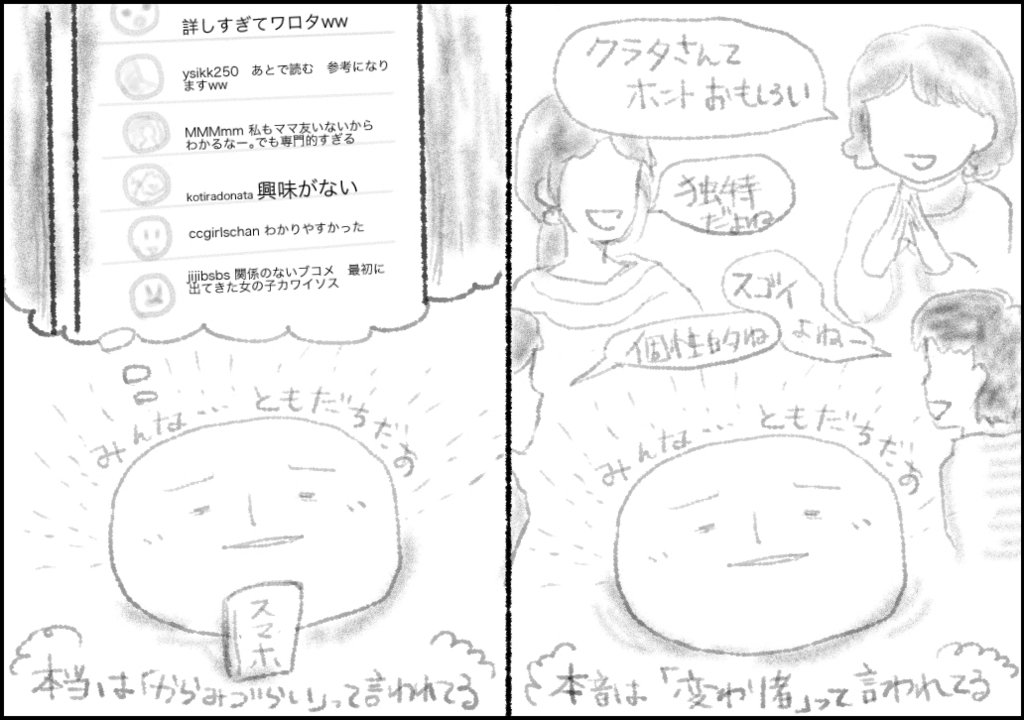 詳しすぎてワロタww
ysikk250 あとで読む 参考になり
ますww
MMMmm 私もママ友いないから
わかるなー。でも専門的すぎる
kotiradonata 興味がない
ccgirlschan わかりやすかった
jijibsbs 関係のないブコメ 最初に
出てきた女の子カワイソス
みんな… ともだちだお
スマホ
本当は「からみづらい」って言われてる
クラタさんて
ホント おもしろい
独特
だよね
スゴイ
よねー
個性的ね
みんな… ともだちだお
本音は「変わり者」って言われてる